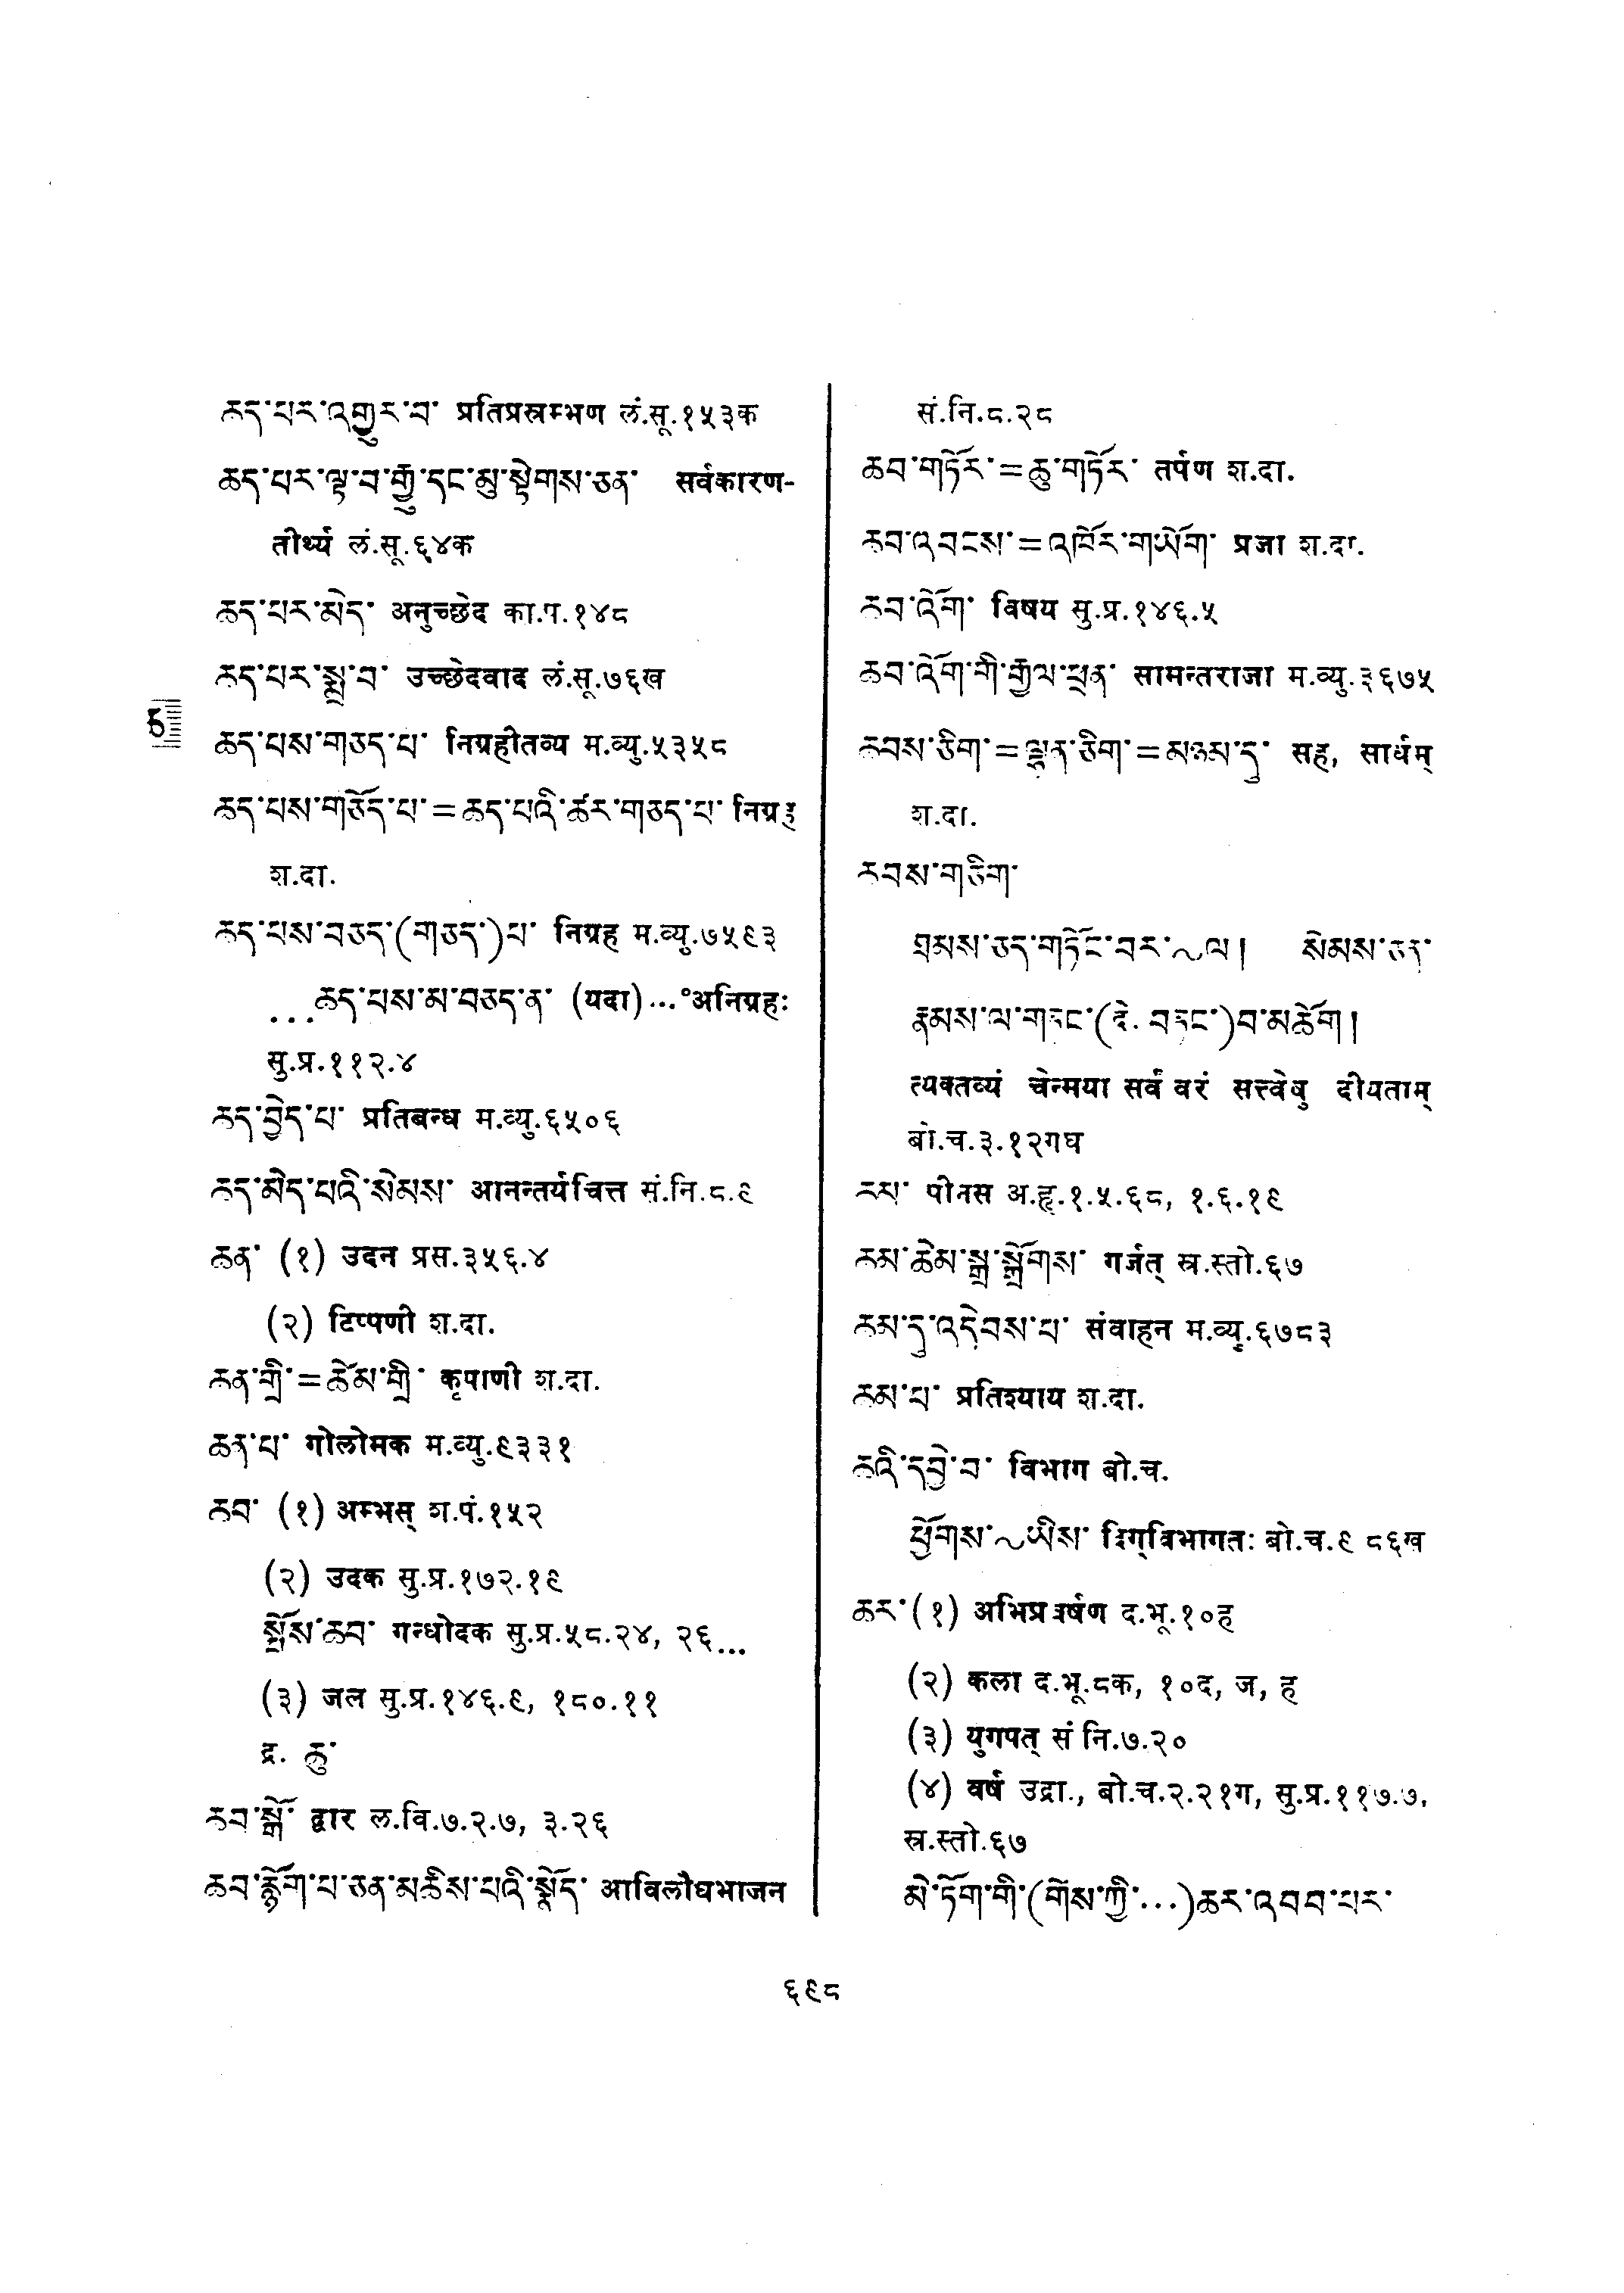 ཆད་པར་འགྱུར་བ་ प्रतिप्रस्रम्भण लं.सू.१५३क
ཆད་པར་ལྟ་བ་རྒྱུ་དང་མུ་སྟེགས་ཅན་ सर्वकारण-
तीर्थ्य लं.सू.६४क
ཆད་པར་མེད་ अनुच्छेद का.प.१४८
ཆད་པར་སྨྲ་བ་ उच्छेदवाद लं.सू.७६ख
ཆ
ཆད་པས་གཅད་པ་ निग्रहीतव्य म.व्यु.५३५८
ཆད་པས་གཅོད་པ་=ཆད་པའི་ཚར་གཅད་པ་ निग्रह
श.दा.
ཆད་པས་བཅད་(གཅད་)པ་ निग्रह म.व्यु.७५९३
...ཆད་པས་མ་བཅད་ན་ (यदा)...°अनिग्रहः
सु.प्र.११२.४
ཆད་བྱེད་པ་ प्रतिबन्ध म.व्यु.६५०६
ཆད་མེད་པའི་སེམས་ आनन्तर्यचित्त सं.नि.८.९
ཆན་ (१) उदन प्रस.३५६.४
(२) टिप्पणी श.दा.
ཆན་གྲི་=ཆེམ་གྲི་ कृपाणी श.दा.
ཆན་པ་ गोलोमक म.व्यु.९३३१
ཆབ་ (१) अम्भस् श.पं.१५२
(२) उदक सु.प्र.१७२.१९
སྤོས་ཆབ་ गन्धोदक सु.प्र.५८.२४, २६...
(३) जल सु.प्र.१४६.९, १८०.११
द्र. ཆུ་
ཆབ་སྒོ་ द्वार ल.वि.७.२.७, ३.२६
ཆབ་རྙོག་པ་ཅན་མཆིས་པའི་སྣོད་ आविलौघभाजन
सं.नि.८.२८
ཆབ་གཏོར་=ཆུ་གཏོར་ तर्पण श.दा.
ཆབ་འབངས་=འཁོར་གཡོག་ प्रजा श.दा.
ཆབ་འོག་ विषय सु.प्र.१४६.५
ཆབ་འོག་གི་རྒྱལ་ཕྲན་ सामन्तराजा म.व्यु.३६७५
ཆབས་ཅིག་=ལྷན་ཅིག་=མཉམ་དུ་ सह, सार्धम्
श.दा.
ཆབས་གཅིག་
ཐམས་ཅད་གཏོང་བར་~ལ། སེམས་ཅན་
རྣམས་ལ་གཏང་(དེ. བཏང་)བ་མཆོག།
त्यक्तव्यं चेन्मया सर्वं वरं सत्त्वेषु दीयताम्
बो.च.३.१२गघ
ཆམ་ पीनस अ.हृ.१.५.६८, १.६.१९
ཆམ་ཆེམ་སྒྲ་སྒྲོགས་ गर्जत् स्र.स्तो.६७
ཆམ་དུ་འདེབས་པ་ संवाहन म.व्यु.६७८३
ཆམ་པ་ प्रतिश्याय श.दा.
ཆའི་དབྱེ་བ་ विभाग बो.च.
ཕྱོགས་~ཡིས་ दिग्विभागतः बो.च.९ ८६ख
ཆར་(१) अभिप्रवर्षण द.भू.१०ह
(२) कला द.भू.८क, १०द, ज, ह
(३) युगपत् सं नि.७.२०
(४) वर्ष उद्रा., बो.च.२.२१ग, सु.प्र.११७.७,
स्र.स्तो.६७
མེ་ཏོག་གི་(གོས་ཀྱི་...)ཆར་འབབ་པར་
६९८